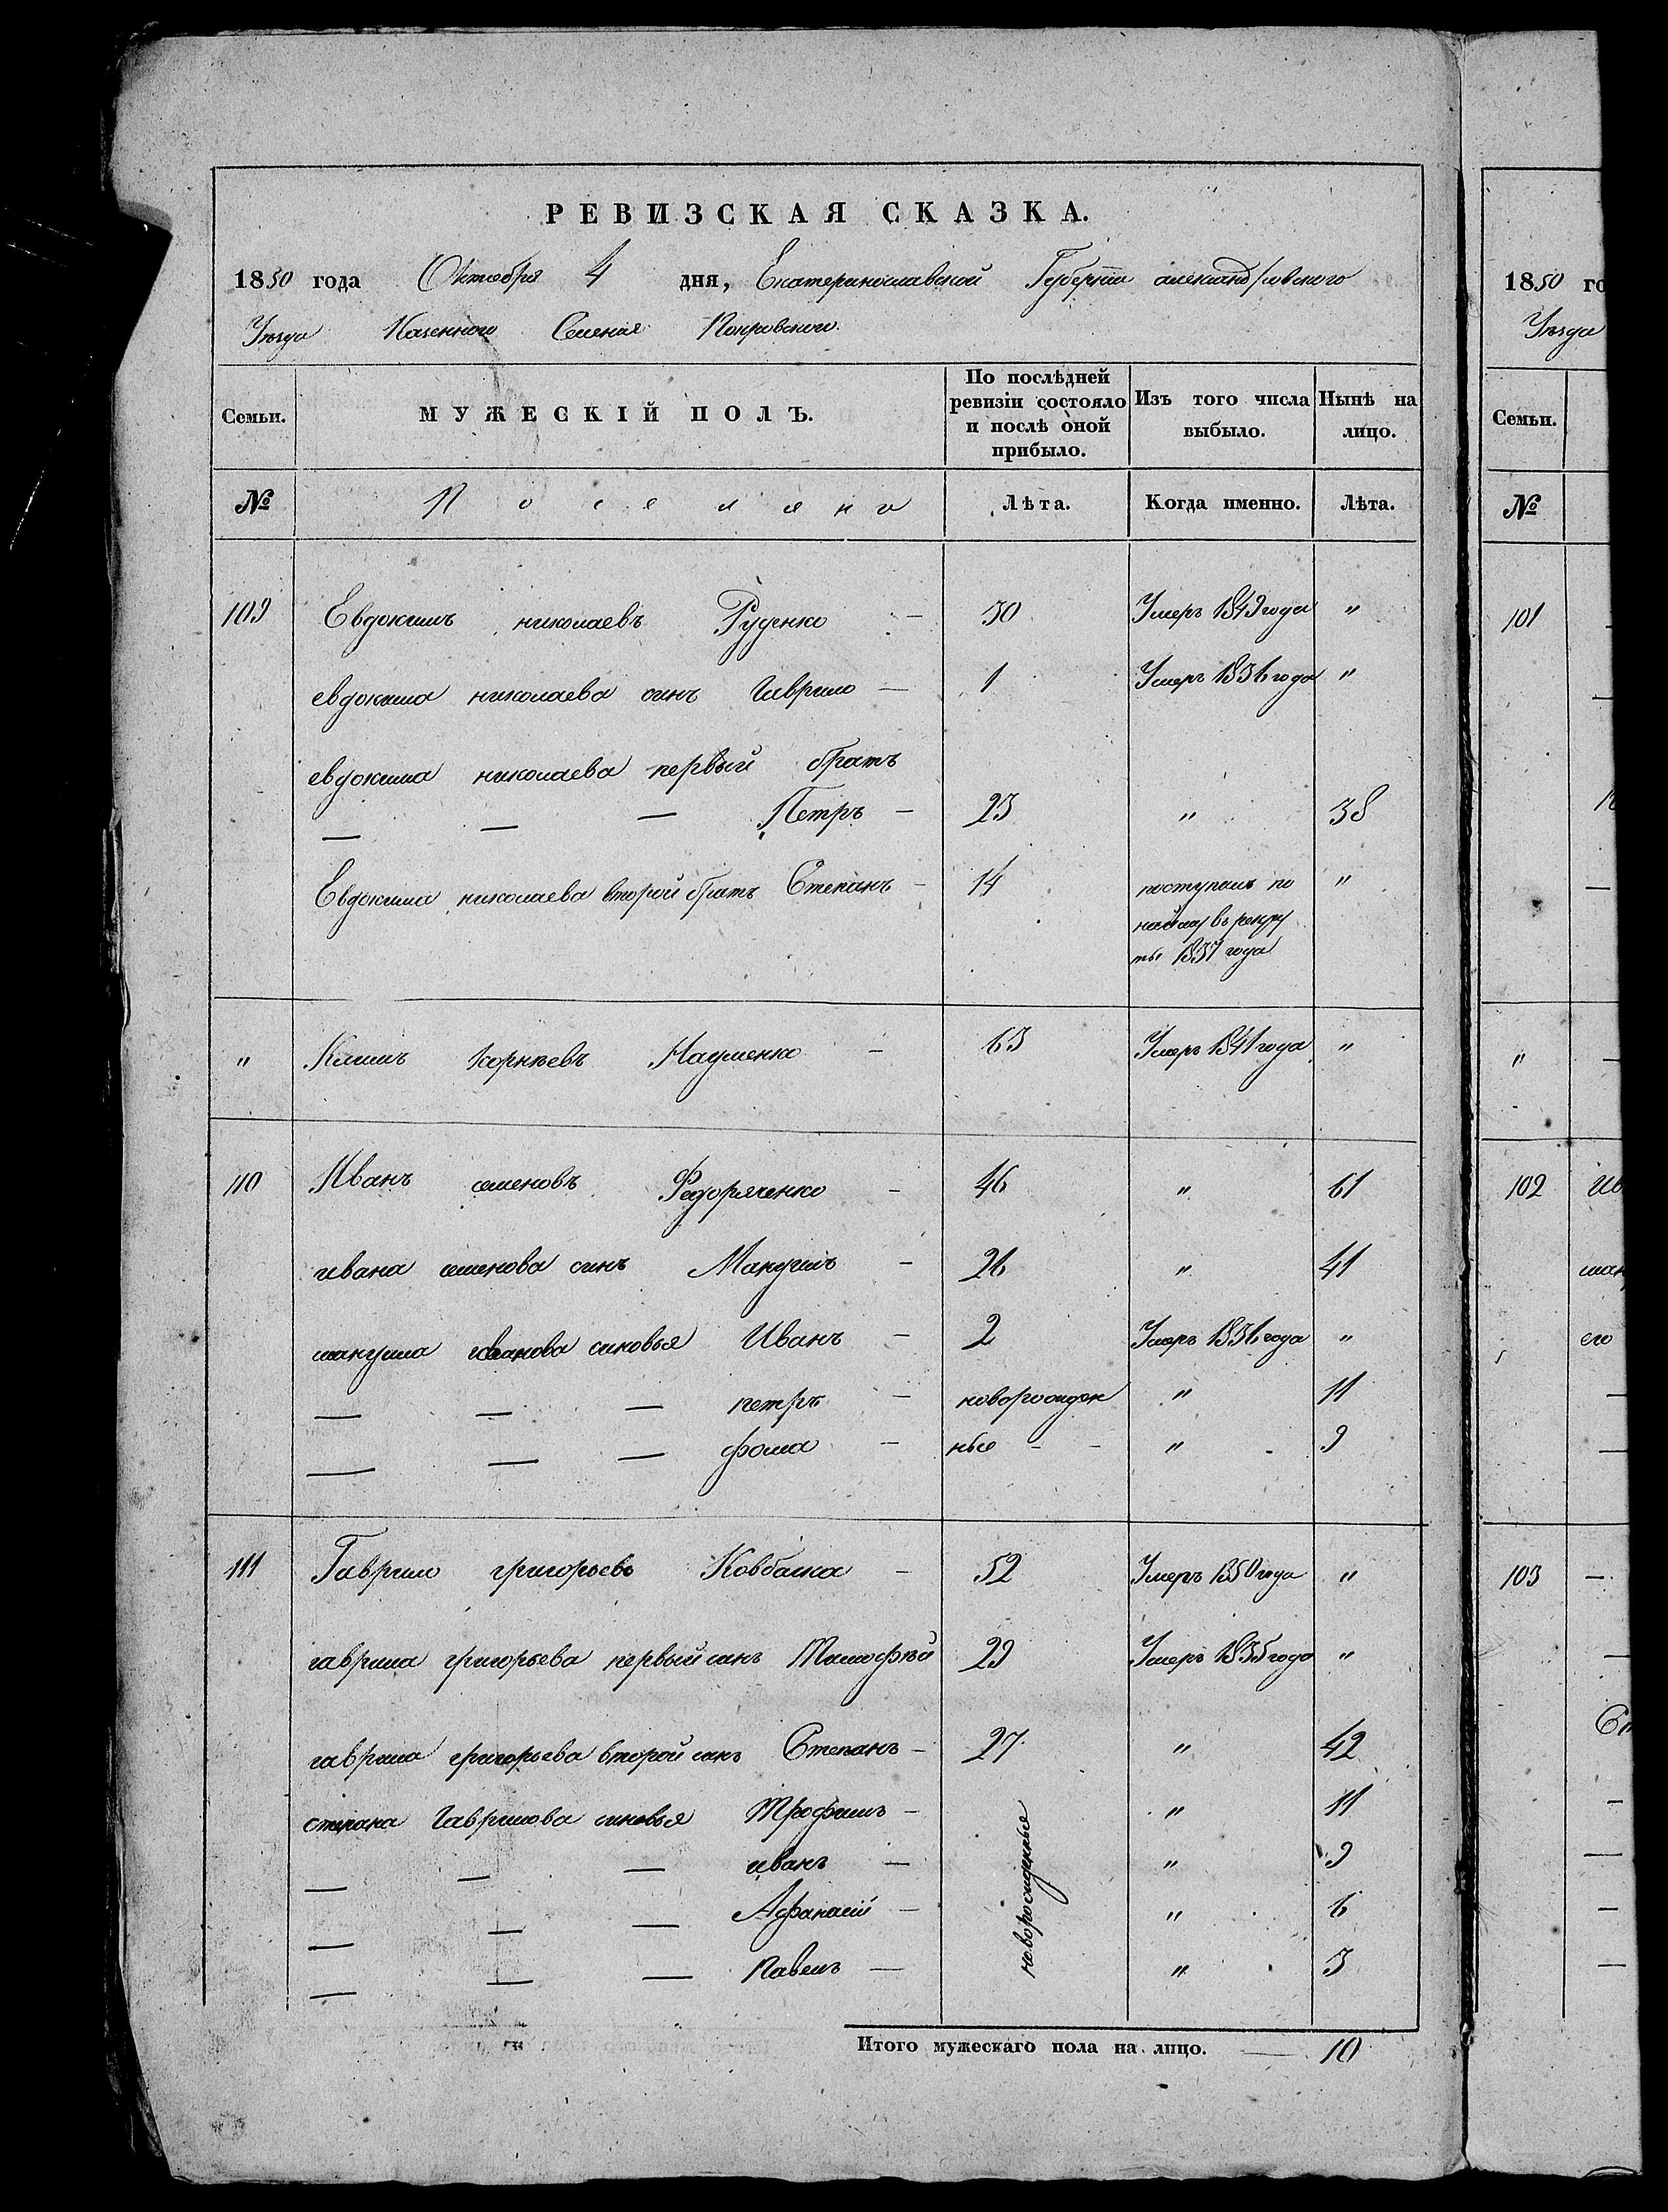 РЕВИЗСКАЯ СКАЗКА.
1850 года Октября 4 дня, Екатеринославской Губернии александровского
Уезда Казенного Селения Покровского.
Семьи. МУЖЕСКІЙ ПОЛЪ. По послѣдней ревизіи состояло и послѣ оной прибыло. Изъ того числа выбыло. Нынѣ на лицо.
№ Поселяне Лѣта. Когда именно. Лѣта.
109 Евдокимъ николаевъ Руденко — 30 Умеръ 1849 года "
евдокима николаева синъ Гаврило — 1 Умеръ 1836 года "
евдокима николаева первый братъ
— — — Петръ — 23 " 38
Евдокима николаева второй братъ Степанъ — 14 поступилъ по "
найму въ рекру
ты 1837 года
" Климъ Корнѣевъ Науменко — 63 Умеръ 1841 года "
110 Иванъ семеновъ Федоряченко — 46 " 61
ивана семенова синъ Мануилъ — 26 " 41
мануила иванова синовья Иванъ — 2 Умеръ 1836 года "
— — — петръ — новорожден " 11
— — — фома — ные - - " 9
111 Гаврило григорьевъ Ковбаса — 52 Умеръ 1850 года "
гаврила григорьева первый синъ Тимофѣй 29 Умеръ 1835 года "
гаврила григорьева второй синъ Степанъ — 27 " 42
степана Гаврилова синовья Трофимъ — новорожденные " 11
— — — иванъ — " 9
— — — Афанасій — " 6
— — — Павелъ — " 3
Итого мужескаго пола на лицо. — 10
1850 го
Уезда
Семьи.
№
101
"
102 ив
ман
его
103 —